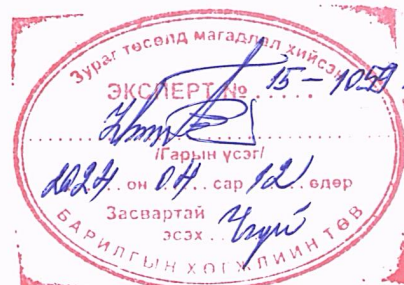 Зураг төсөлд магадлал хийсэн
ЭКСПЕРТ № 15-1059
/Гарын үсэг/
2024 он 04 сар 12 өдөр
Засвартай
эсэх Үгүй
БАРИЛГЫН ХӨГЖЛИЙН ТӨВ